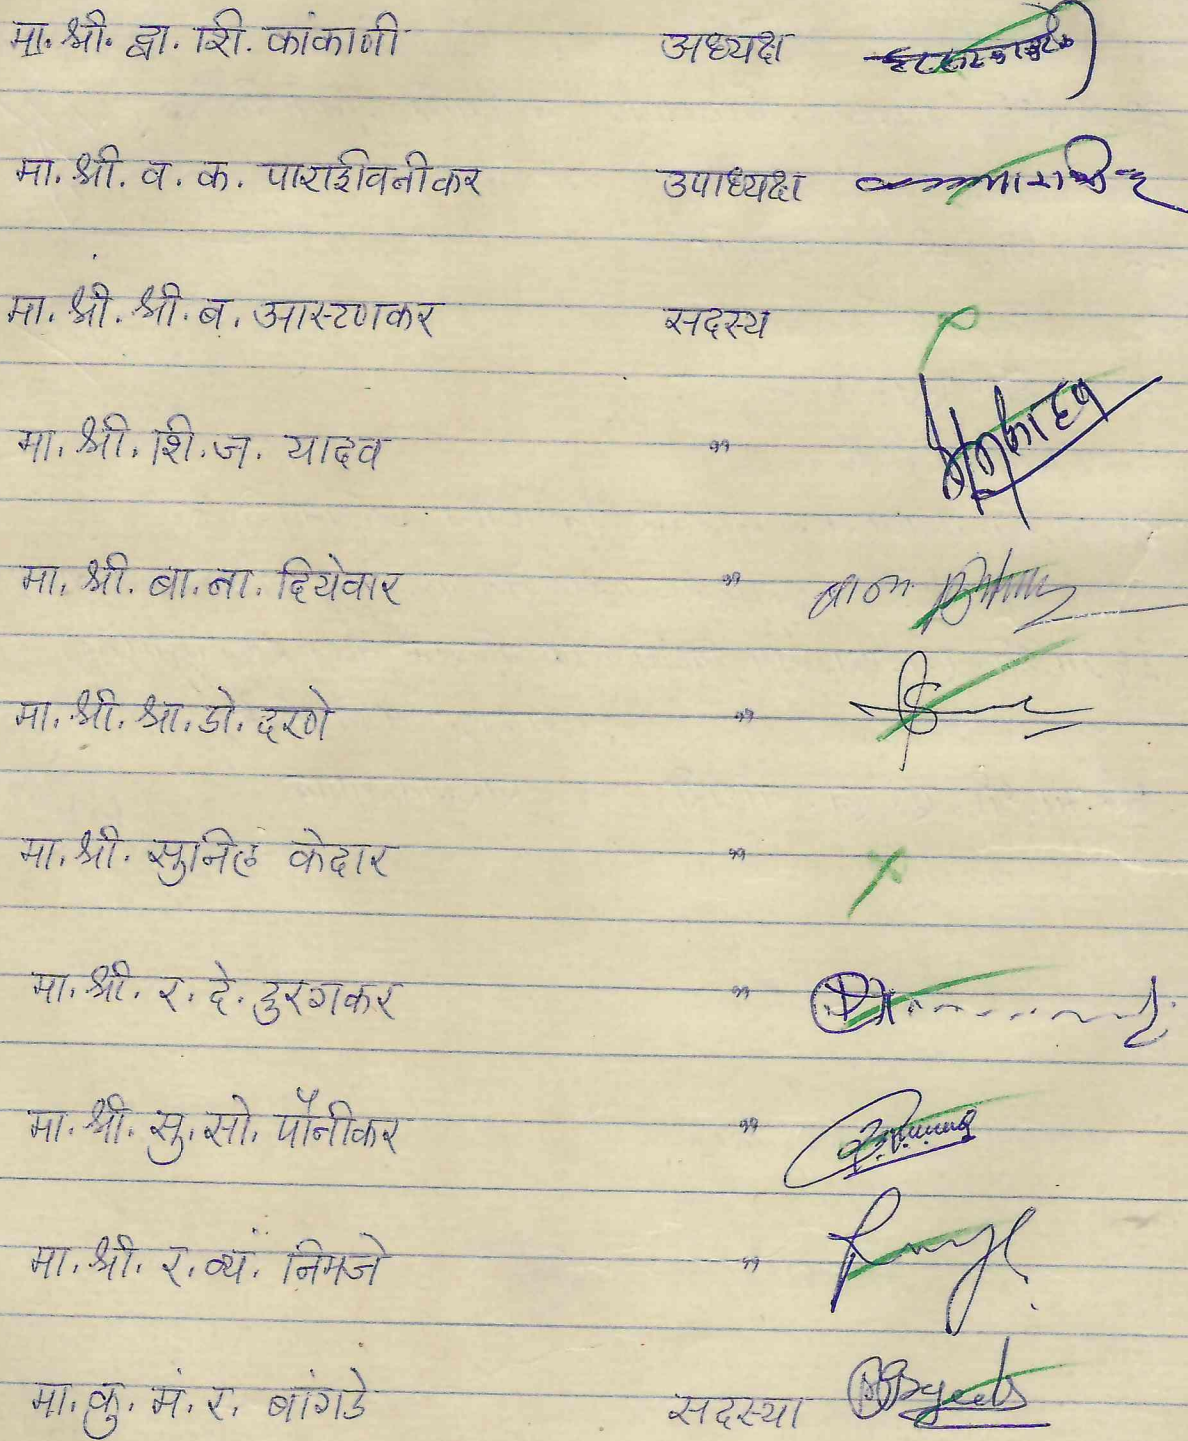 मा. श्री. द्वा. शि. कांकाणी अध्यक्ष
मा. श्री. व. क. पाराशीवनीकर उपाध्यक्ष
मा. श्री. श्री. ब. आस्टणकर सदस्य
मा. श्री. शि. ज. यादव "
मा. श्री. बा. ना. दियेवार "
मा. श्री. श्रा. डो. दरणे "
मा. श्री. सुनिल केदार "
मा. श्री. र. दे. दुरगकर "
मा. श्री. सु. सो. पौनीकर "
मा. श्री. र. व्यं. निमजे "
मा. कु. मं. र. बांगडे सदस्या